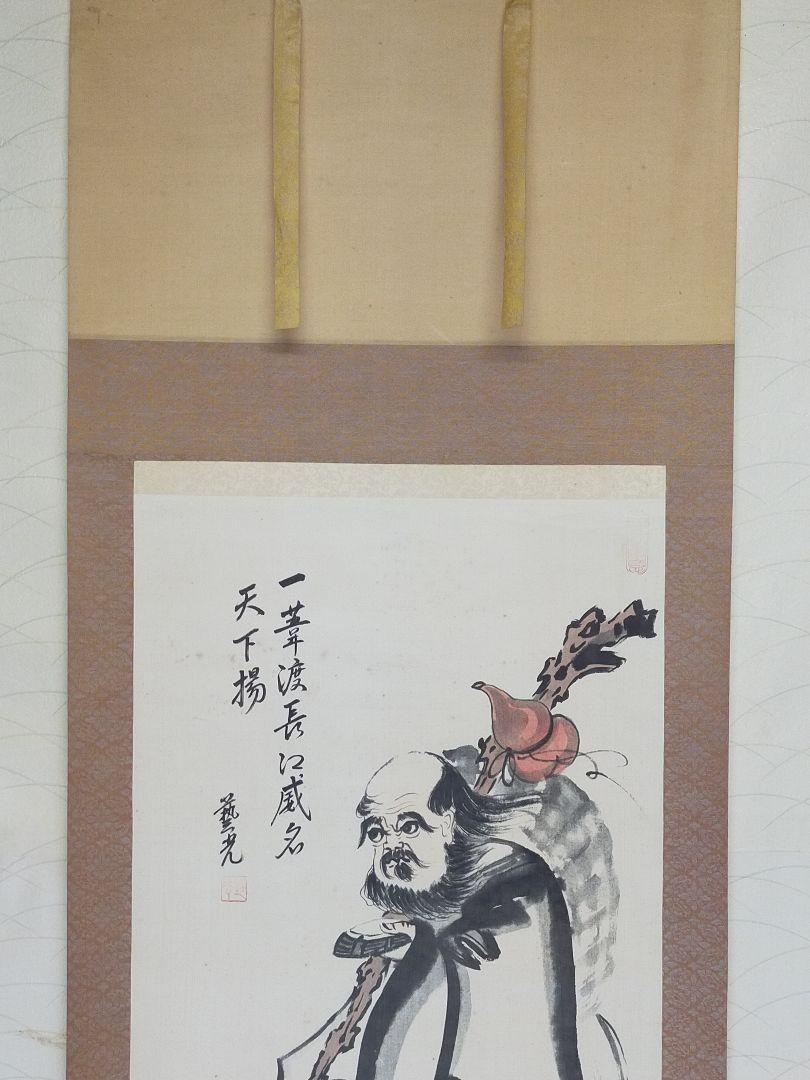 一葦渡長江威名
天下揚
藝光